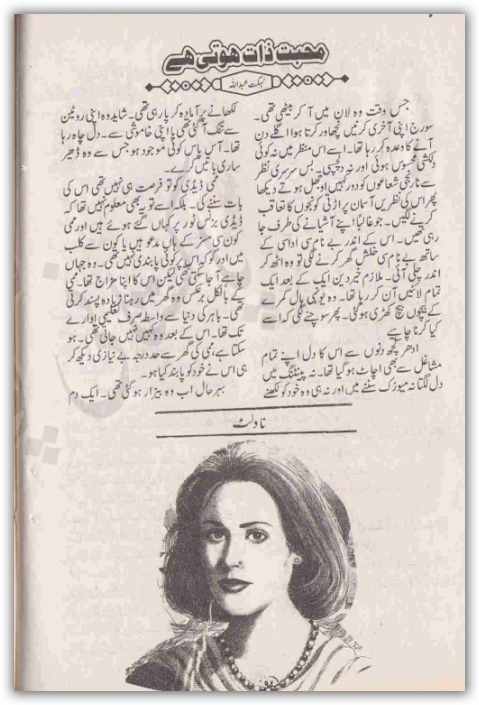 محبت ذات ھوتی ھے
نگہت عبداللہ
جس وقت وہ لان میں آ کر بیٹھی تھی۔
سورج اپنی آخری کرنیں نچھاور کرتا ہوا اگلے دن
آنے کا وعدہ کر رہا تھا۔ اسے اس منظر میں نہ کوئی
دلکشی محسوس ہوئی اور نہ دلچسپی۔ بس سرسری نظر
سے نارنجی شعاعوں کو دور کہیں اوجھل ہوتے دیکھا
پھر اس کی نظریں آسمان پر اڑتی کونجوں کا تعاقب
کرنے لگیں۔ جو غالباً اپنے آشیانے کی طرف جا
رہی تھیں۔ اس کے اندر بے نام سی اداسی کے
ساتھ بے نام سی خلش گھر کرنے لگی تو وہ اٹھ کر
اندر چلی آئی۔ ملازم خیر دین ایک کے بعد ایک
تمام لائٹیں آن کر رہا تھا۔ وہ یونہی ہال کمرے
کے بیچوں بیچ کھڑی ہو گئی۔ پھر سوچنے لگی کہ اسے
کیا کرنا چاہیے
ادھر کچھ دنوں سے اس کا دل اپنے تمام
مشاغل سے بھی اچاٹ ہو گیا تھا۔ نہ پینٹنگ میں
دل لگتا نہ میوزک سننے میں اور نہ ہی وہ خود کو لکھنے
لکھانے پر آمادہ کر پا رہی تھی۔ شاید وہ اپنی روٹین
سے تنگ آ گئی تھی یا اپنی خاموشی سے۔ دل چاہ رہا
تھا۔ آس پاس کوئی موجود ہو جس سے وہ ڈھیر
ساری باتیں کرے۔
ممی ڈیڈی کو تو فرصت ہی نہیں تھی اس کی
بات سننے کی۔ بلکہ اسے تو یہ بھی معلوم نہیں تھا کہ
ڈیڈی بزنس ٹور پر کہاں گئے ہوئے ہیں اور ممی
کون سی مسز کے ہاں مدعو ہیں یا کون سے کلب
میں اور گو کہ اس پر کوئی پابندی نہیں تھی۔ وہ جہاں
چاہے آ جا سکتی تھی لیکن اس کا اپنا مزاج تھا۔ ممی
کے بالکل برعکس وہ گھر میں رہنا زیادہ پسند کرتی
تھی۔ باہر کی دنیا سے واسطہ صرف تعلیمی ادارے
تک تھا۔ اس کے بعد وہ کہیں نہیں جاتی تھی۔ ہو
سکتا ہے، ممی کی گھر سے حد درجہ بے نیازی دیکھ کر
ہی اس نے خود کو پابند کیا ہو۔
بہرحال اب وہ بیزار ہو گئی تھی۔ ایک دم
ناولٹ